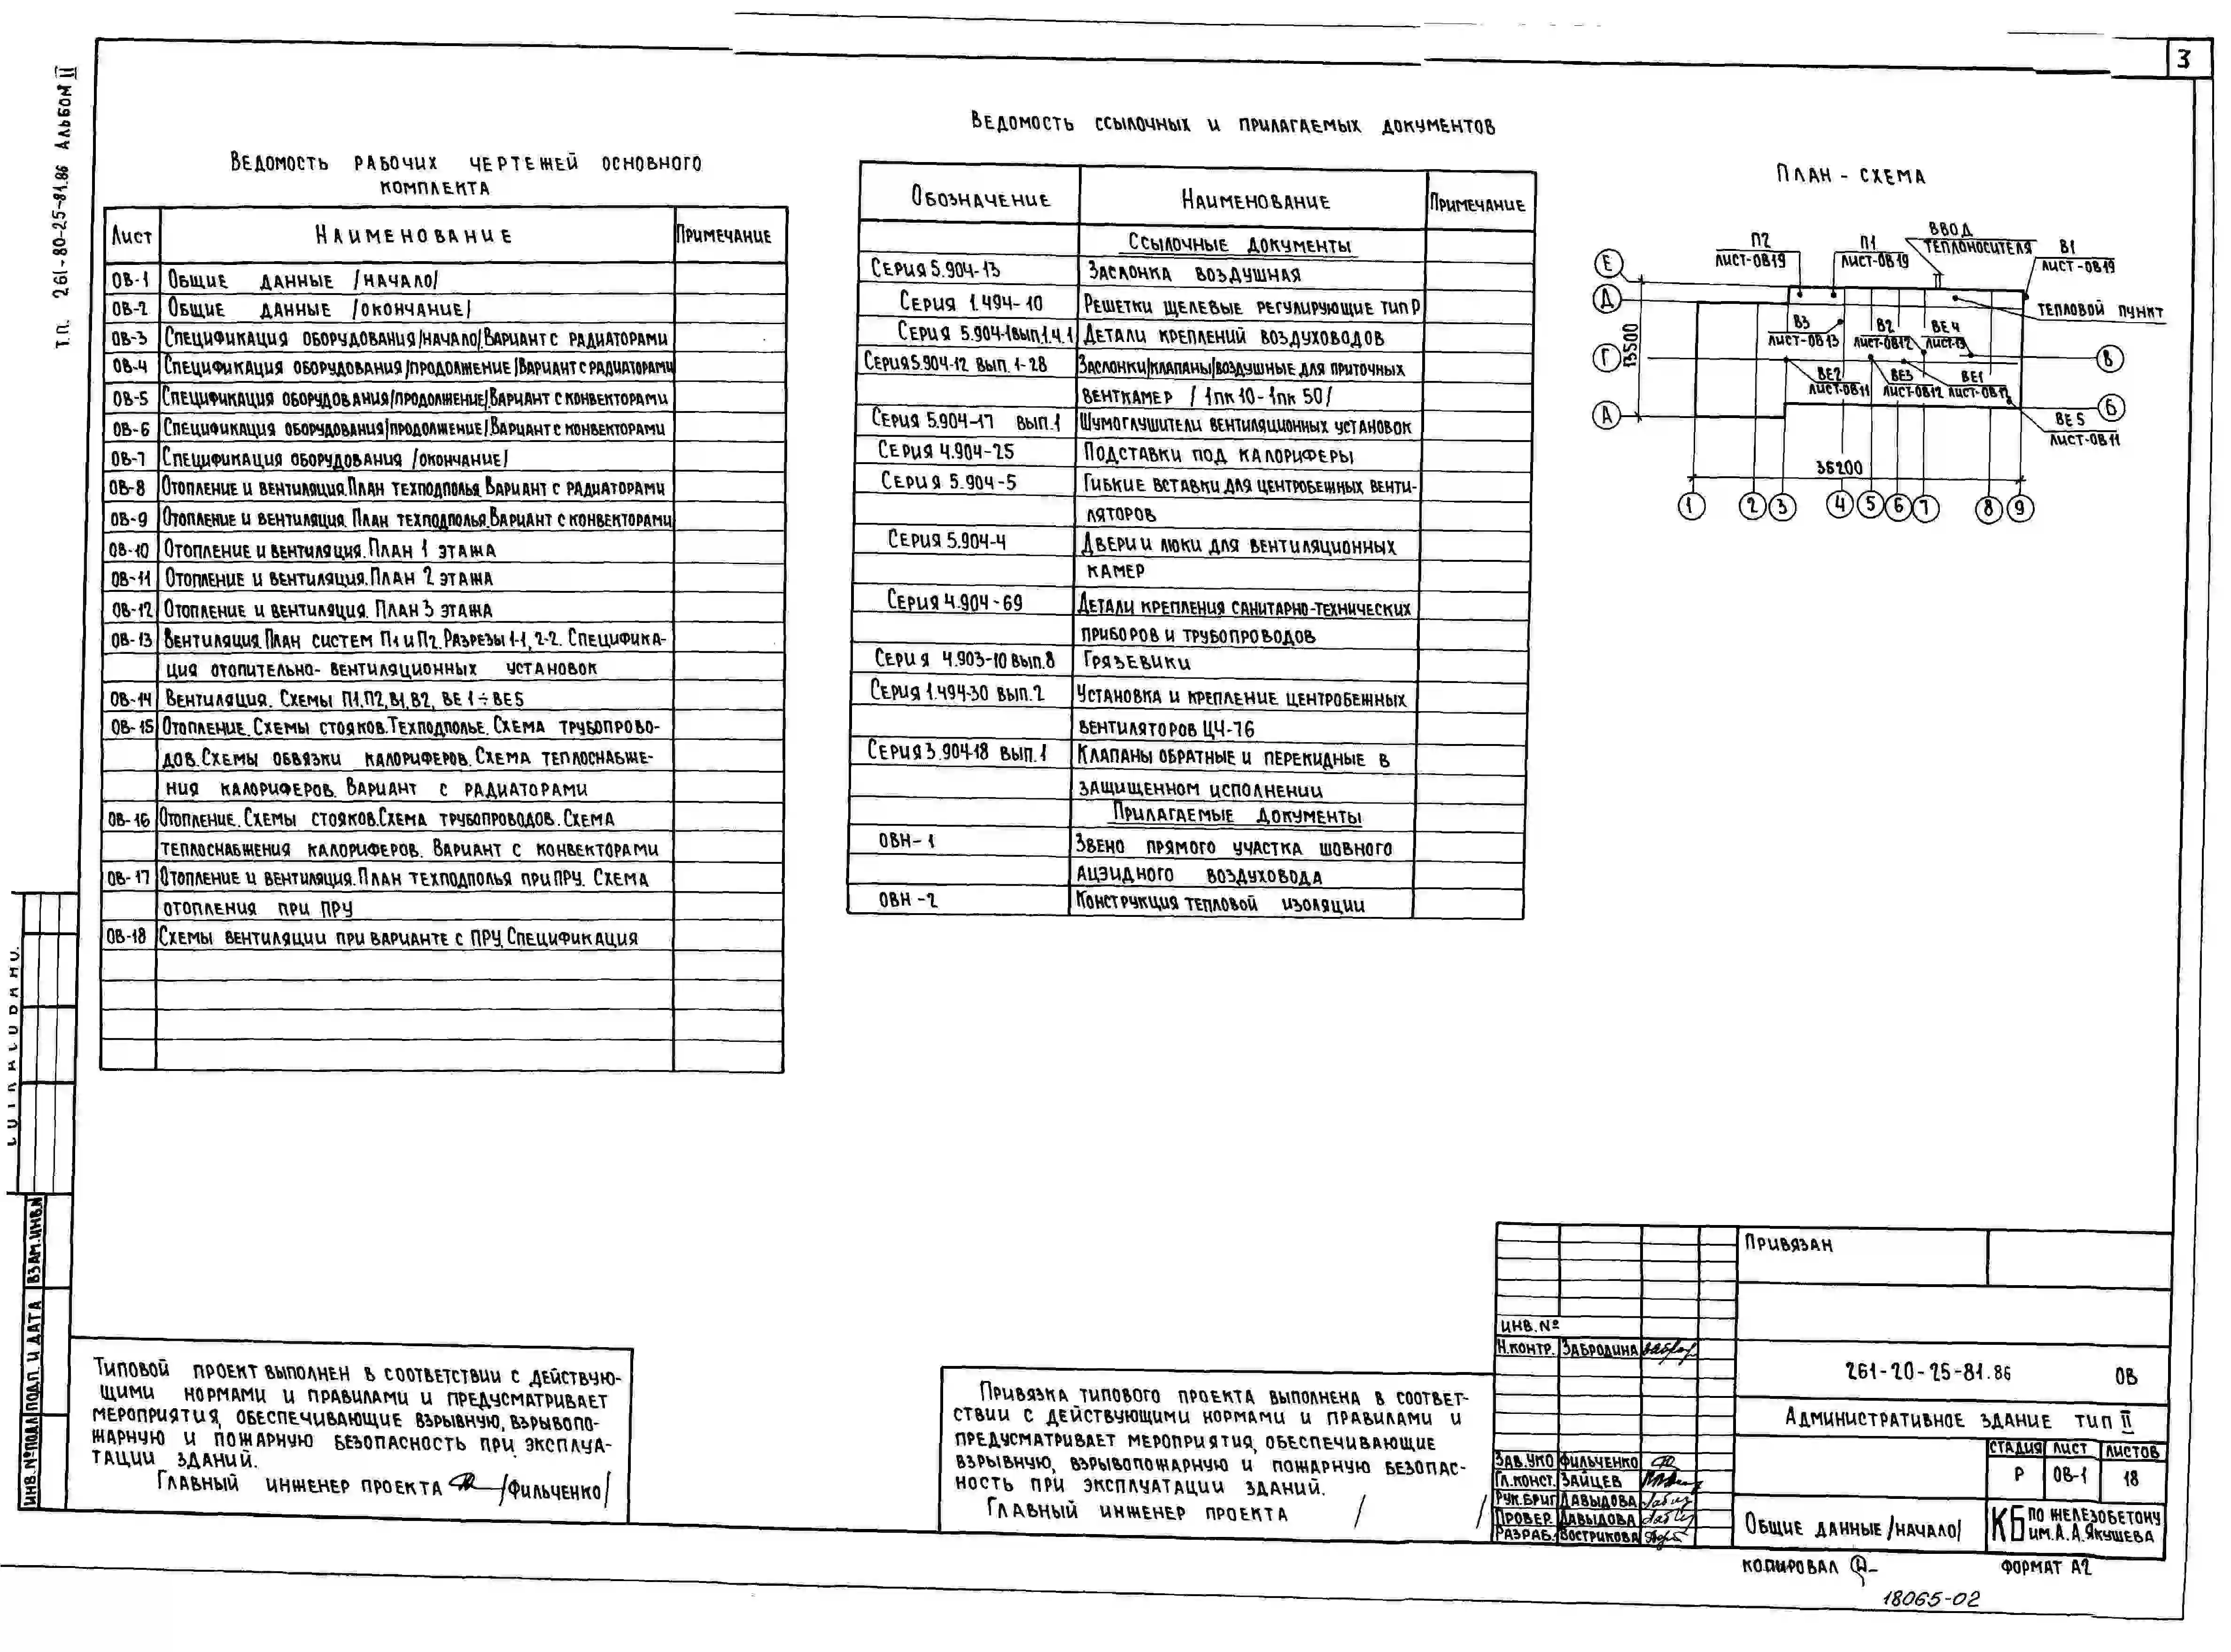 3
Т.П. 261-80-25-81.86 АЛЬБОМ II
ВЕДОМОСТЬ РАБОЧИХ ЧЕРТЕЖЕЙ ОСНОВНОГО
КОМПЛЕКТА
ЛИСТ НАИМЕНОВАНИЕ ПРИМЕЧАНИЕ
ОВ-1 ОБЩИЕ ДАННЫЕ /НАЧАЛО/
ОВ-2 ОБЩИЕ ДАННЫЕ /ОКОНЧАНИЕ/
ОВ-3 СПЕЦИФИКАЦИЯ ОБОРУДОВАНИЯ/НАЧАЛО/.ВАРИАНТ С РАДИАТОРАМИ
ОВ-4 СПЕЦИФИКАЦИЯ ОБОРУДОВАНИЯ/ПРОДОЛЖЕНИЕ/ВАРИАНТ С РАДИАТОРАМИ
ОВ-5 СПЕЦИФИКАЦИЯ ОБОРУДОВАНИЯ/ПРОДОЛЖЕНИЕ/.ВАРИАНТ С КОНВЕКТОРАМИ
ОВ-6 СПЕЦИФИКАЦИЯ ОБОРУДОВАНИЯ/ПРОДОЛЖЕНИЕ/.ВАРИАНТ С КОНВЕКТОРАМИ
ОВ-7 СПЕЦИФИКАЦИЯ ОБОРУДОВАНИЯ /ОКОНЧАНИЕ/
ОВ-8 ОТОПЛЕНИЕ И ВЕНТИЛЯЦИЯ.ПЛАН ТЕХПОДПОЛЬЯ.ВАРИАНТ С РАДИАТОРАМИ
ОВ-9 ОТОПЛЕНИЕ И ВЕНТИЛЯЦИЯ. ПЛАН ТЕХПОДПОЛЬЯ.ВАРИАНТ С КОНВЕКТОРАМИ
ОВ-10 ОТОПЛЕНИЕ И ВЕНТИЛЯЦИЯ.ПЛАН 1 ЭТАЖА
ОВ-11 ОТОПЛЕНИЕ И ВЕНТИЛЯЦИЯ.ПЛАН 2 ЭТАЖА
ОВ-12 ОТОПЛЕНИЕ И ВЕНТИЛЯЦИЯ. ПЛАН 3 ЭТАЖА
ОВ-13 ВЕНТИЛЯЦИЯ.ПЛАН СИСТЕМ П1 И П2. РАЗРЕЗЫ 1-1, 2-2. СПЕЦИФИКА-
ЦИЯ ОТОПИТЕЛЬНО- ВЕНТИЛЯЦИОННЫХ УСТАНОВОК
ОВ-14 ВЕНТИЛЯЦИЯ. СХЕМЫ П1,П2,В1,В2, ВЕ 1÷ВЕ5
ОВ-15 ОТОПЛЕНИЕ.СХЕМЫ СТОЯКОВ.ТЕХПОДПОЛЬЕ. СХЕМА ТРУБОПРОВО-
ДОВ.СХЕМЫ ОБВЯЗКИ КАЛОРИФЕРОВ.СХЕМА ТЕПЛОСНАБЖЕ-
НИЯ КАЛОРИФЕРОВ. ВАРИАНТ С РАДИАТОРАМИ
ОВ-16 ОТОПЛЕНИЕ.СХЕМЫ СТОЯКОВ.СХЕМА ТРУБОПРОВОДОВ.СХЕМА
ТЕПЛОСНАБЖЕНИЯ КАЛОРИФЕРОВ. ВАРИАНТ С КОНВЕКТОРАМИ
ОВ-17 ОТОПЛЕНИЕ И ВЕНТИЛЯЦИЯ.ПЛАН ТЕХПОДПОЛЬЯ ПРИ ПРУ. СХЕМА
ОТОПЛЕНИЯ ПРИ ПРУ
ОВ-18 СХЕМЫ ВЕНТИЛЯЦИИ ПРИ ВАРИАНТЕ С ПРУ.СПЕЦИФИКАЦИЯ
ВЕДОМОСТЬ ССЫЛОЧНЫХ И ПРИЛАГАЕМЫХ ДОКУМЕНТОВ
ОБОЗНАЧЕНИЕ НАИМЕНОВАНИЕ ПРИМЕЧАНИЕ
ССЫЛОЧНЫЕ ДОКУМЕНТЫ
СЕРИЯ 5.904-13 ЗАСЛОНКА ВОЗДУШНАЯ
СЕРИЯ 1.494-10 РЕШЕТКИ ЩЕЛЕВЫЕ РЕГУЛИРУЮЩИЕ ТИП Р
СЕРИЯ 5.904-1 ВЫП.1.Ч.1 ДЕТАЛИ КРЕПЛЕНИЙ ВОЗДУХОВОДОВ
СЕРИЯ 5.904-12 ВЫП. 1-28 ЗАСЛОНКИ/КЛАПАНЫ/ВОЗДУШНЫЕ ДЛЯ ПРИТОЧНЫХ
ВЕНТКАМЕР /1ПК 10-1ПК 50/
СЕРИЯ 5.904-17 ВЫП.1 ШУМОГЛУШИТЕЛИ ВЕНТИЛЯЦИОННЫХ УСТАНОВОК
СЕРИЯ 4.904-25 ПОДСТАВКИ ПОД КАЛОРИФЕРЫ
СЕРИЯ 5.904-5 ГИБКИЕ ВСТАВКИ ДЛЯ ЦЕНТРОБЕЖНЫХ ВЕНТИ-
ЛЯТОРОВ
СЕРИЯ 5.904-4 ДВЕРИ И ЛЮКИ ДЛЯ ВЕНТИЛЯЦИОННЫХ
КАМЕР
СЕРИЯ 4.904-69 ДЕТАЛИ КРЕПЛЕНИЯ САНИТАРНО-ТЕХНИЧЕСКИХ
ПРИБОРОВ И ТРУБОПРОВОДОВ
СЕРИЯ 4.903-10 ВЫП.8 ГРЯЗЕВИКИ
СЕРИЯ 1.494-30 ВЫП.2 УСТАНОВКА И КРЕПЛЕНИЕ ЦЕНТРОБЕЖНЫХ
ВЕНТИЛЯТОРОВ ЦЧ-76
СЕРИЯ 3.904-18 ВЫП.1 КЛАПАНЫ ОБРАТНЫЕ И ПЕРЕКИДНЫЕ В
ЗАЩИЩЕННОМ ИСПОЛНЕНИИ
ПРИЛАГАЕМЫЕ ДОКУМЕНТЫ
ОВН-1 ЗВЕНО ПРЯМОГО УЧАСТКА ШОВНОГО
АЦЭИДНОГО ВОЗДУХОВОДА
ОВН-2 КОНСТРУКЦИЯ ТЕПЛОВОЙ ИЗОЛЯЦИИ
ПЛАН - СХЕМА
П2 П1 ВВОД
ТЕПЛОНОСИТЕЛЯ В1
ЛИСТ-ОВ19 ЛИСТ-ОВ19 ЛИСТ-ОВ19
Е
Д
ТЕПЛОВОЙ ПУНКТ
В3 В2 ВЕ4
ЛИСТ-ОВ13 ЛИСТ-ОВ12 ЛИСТ-13
Г В
13500
ВЕ2 ВЕ3 ВЕ1
ЛИСТ-ОВ11 ЛИСТ-ОВ12 ЛИСТ-ОВ12
А Б
ВЕ5
ЛИСТ-ОВ11
36200
1 2 3 4 5 6 7 8 9
ВЗАМ.ИНВ.№
ПОДП. И ДАТА
ИНВ.№ПОДЛ
ТИПОВОЙ ПРОЕКТ ВЫПОЛНЕН В СООТВЕТСТВИИ С ДЕЙСТВУЮ-
ЩИМИ НОРМАМИ И ПРАВИЛАМИ И ПРЕДУСМАТРИВАЕТ
МЕРОПРИЯТИЯ, ОБЕСПЕЧИВАЮЩИЕ ВЗРЫВНУЮ, ВЗРЫВОПО-
ЖАРНУЮ И ПОЖАРНУЮ БЕЗОПАСНОСТЬ ПРИ ЭКСПЛУА-
ТАЦИИ ЗДАНИЙ.
ГЛАВНЫЙ ИНЖЕНЕР ПРОЕКТА /ФИЛЬЧЕНКО/
ПРИВЯЗКА ТИПОВОГО ПРОЕКТА ВЫПОЛНЕНА В СООТВЕТ-
СТВИИ С ДЕЙСТВУЮЩИМИ НОРМАМИ И ПРАВИЛАМИ И
ПРЕДУСМАТРИВАЕТ МЕРОПРИЯТИЯ, ОБЕСПЕЧИВАЮЩИЕ
ВЗРЫВНУЮ, ВЗРЫВОПОЖАРНУЮ И ПОЖАРНУЮ БЕЗОПАС-
НОСТЬ ПРИ ЭКСПЛУАТАЦИИ ЗДАНИЙ.
ГЛАВНЫЙ ИНЖЕНЕР ПРОЕКТА / /
ПРИВЯЗАН
ИНВ.№
Н.КОНТР. ЗАБРОДИНА
261-20-25-81.86 ОВ
АДМИНИСТРАТИВНОЕ ЗДАНИЕ ТИП II
СТАДИЯ ЛИСТ ЛИСТОВ
Р ОВ-1 18
ЗАВ.УКО ФИЛЬЧЕНКО
ГЛ.КОНСТ. ЗАЙЦЕВ
РУК.БРИГ ДАВЫДОВА
ПРОВЕР. ДАВЫДОВА
РАЗРАБ. ВОСТРИКОВА
ОБЩИЕ ДАННЫЕ /НАЧАЛО/
КБ ПО ЖЕЛЕЗОБЕТОНУ
ИМ.А.А.ЯКУШЕВА
КОПИРОВАЛ ФОРМАТ А2
18065-02